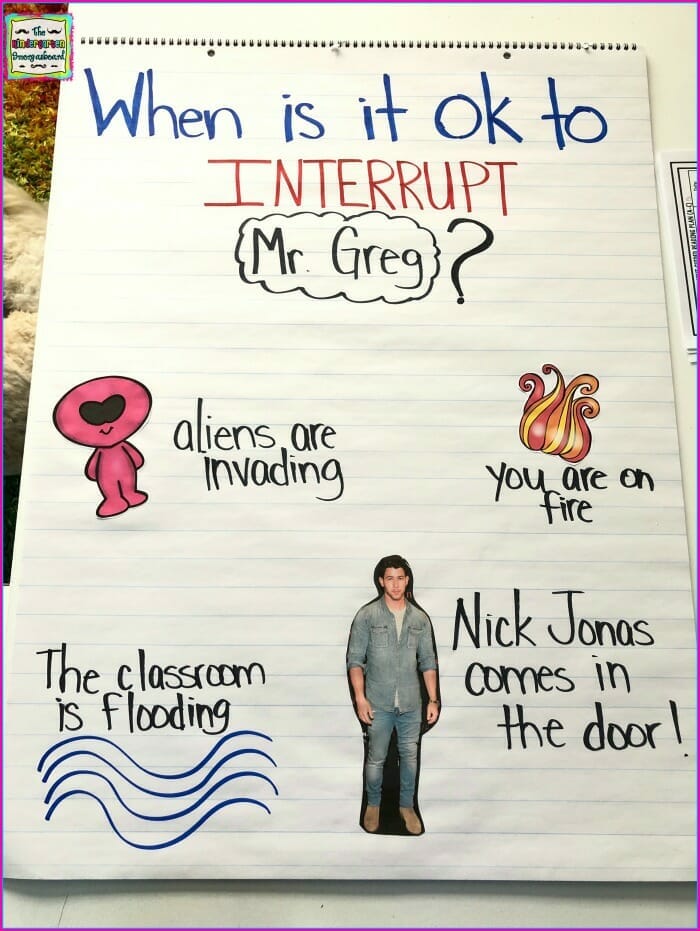 The
Kindergarten
Smorgasboard
When is it ok to
INTERRUPT
Mr. Greg?
aliens are
invading
you are on
fire
The classroom
is flooding
Nick Jonas
comes in
the door!